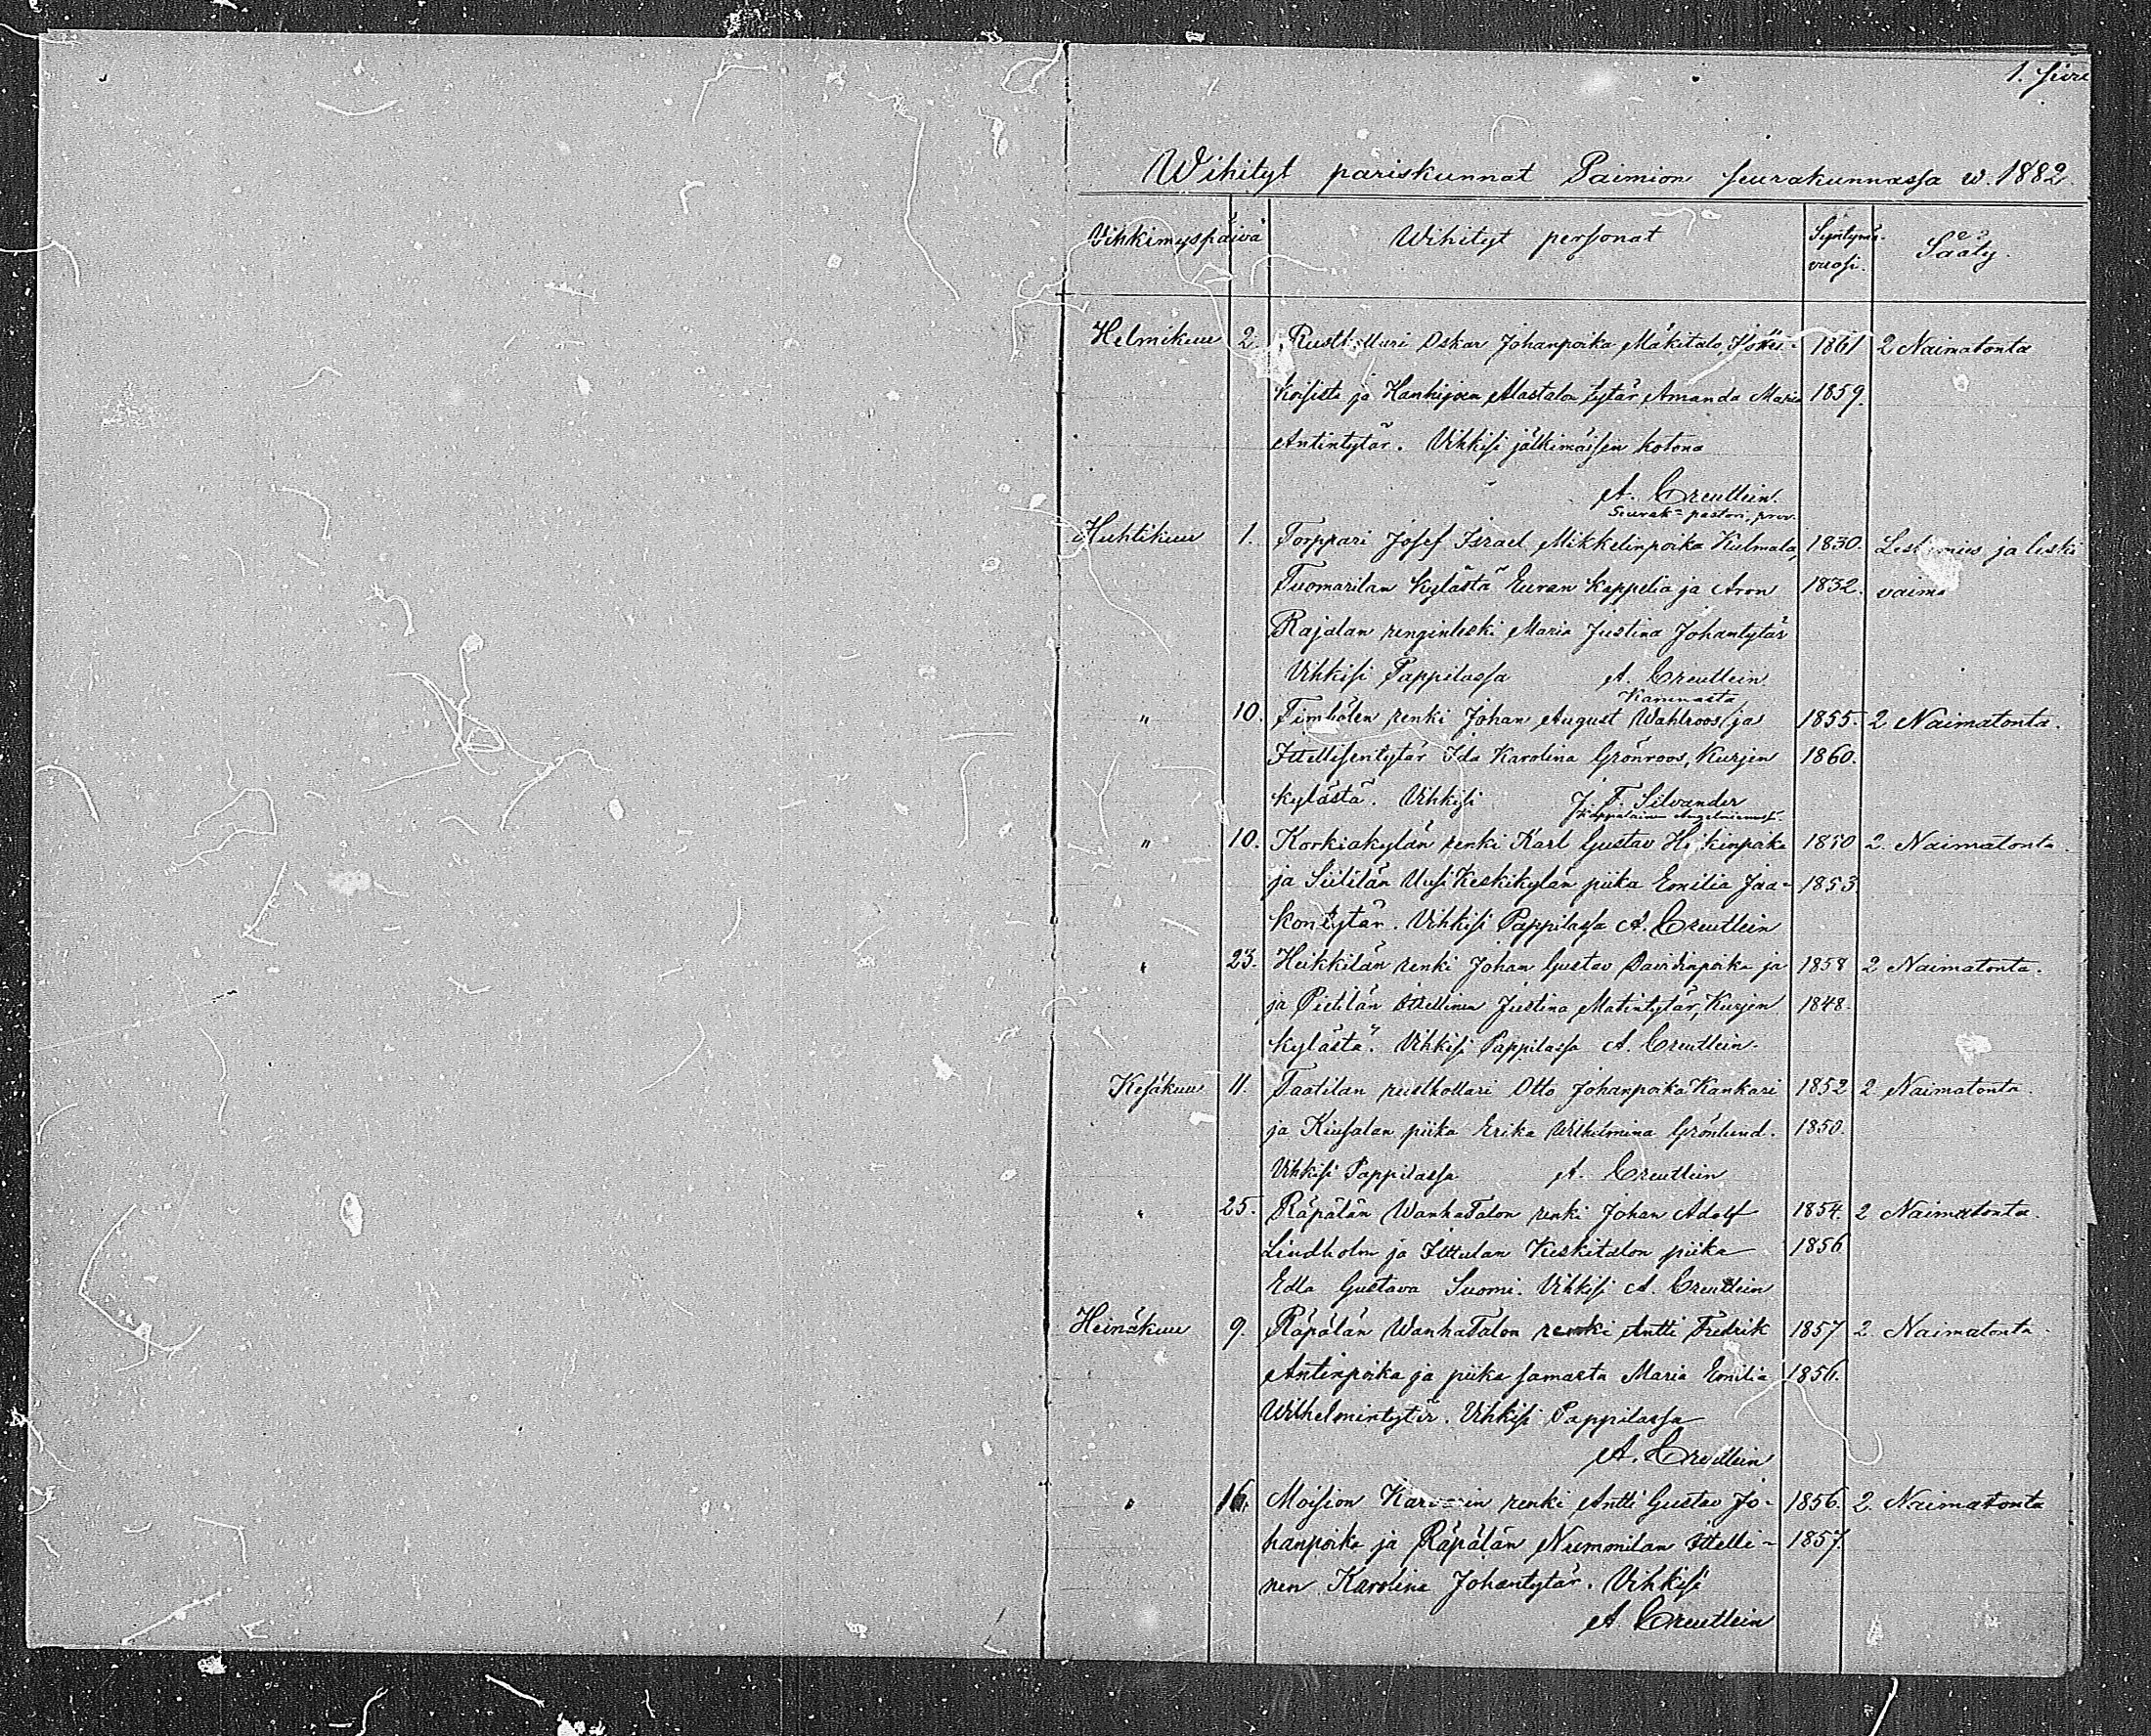 1. sivu
Wihityt pariskunnat Paimion seurakunnassa w. 1882.
Vihkimyspäivä Wihityt personat Syntymä- vuosi. Sääty.
Helmikuu 2. Rusthollari Oskar Johanpoika Mäkitalo, 1861 2 Naimatonta
ja Hanhijoen Alastalon tytär Amanda Maria 1859.
Antintytär. Vihkisi jälkimäissen kotona
A. Creutlein.
Seurak= pastori, prov.
Huhtikuu 1. Torppari Josef Israel Mikkelinpoika Kulmala, 1830. Leskimies ja leski
Tuomarilan kylästä Euran kappelia ja Aron 1832. vaimo
Rajalan renginleski Maria Justina Johantytär
Vihkisi Pappilassa A. Creutlein
Kammasta
" 10. renki Johan August Wahlroos ja 1855. 2 Naimatonta.
Ittellisentytär Ida Karolina Grönroos, Kurjen 1860.
kylästä. Vihkisi J. F. Silvander
Kappalainen Angelniemessä.
" 10. Korkiakylän renki Karl Gustav Heikinpoika 1850 2. Naimatonta.
ja Siililän Uusi Keskikylän piika Emilia Jaa- 1853
kontytär. Vihkisi Pappilassa A. Creutlein
" 23. Heikkilän renki Johan Gustav Davidinpoika ja 1858 2 Naimatonta.
ja Pietilän ittellinen Justina Matintytär, Kurjen 1848.
kylästä. Vihkisi Pappilassa A. Creutlein.
Kesäkuu 11. Taatilan rusthollari Otto Johanpoika Kankari 1852 2 Naimatonta.
ja Kiusalan piika Erika Wilhelmina Grönlund. 1850.
Vihkisi Pappilassa A. Creutlein
" 25. Räpälän WanhaTalon renki Johan Adolf 1854. 2 Naimatonta.
Lindholm ja Ittulan Keskitalon piika 1856
Edla Gustava Suomi. Vihkisi A. Creutlein
Heinäkuu 9. Räpälän WanhaTalon renki Antti Fredrik 1857 2. Naimatonta.
Antinpoika ja piika samasta Maria Emilia 1856.
Wilhelmintytär. Vihkisi Pappilassa
A. Creutlein
" 16. Moision renki Antti Gustav Jo- 1856. 2. Naimatonta
hanpoika ja Räpälän Nummilan ittelli- 1857.
nen Karolina Johantytär. Vihkisi
A. Creutlein